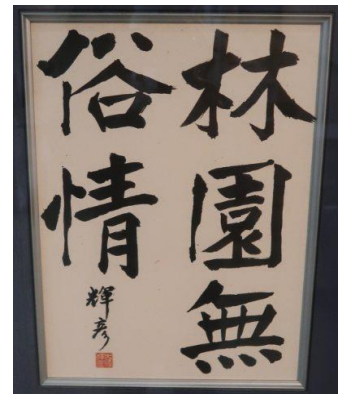 林園無
俗情
輝彦